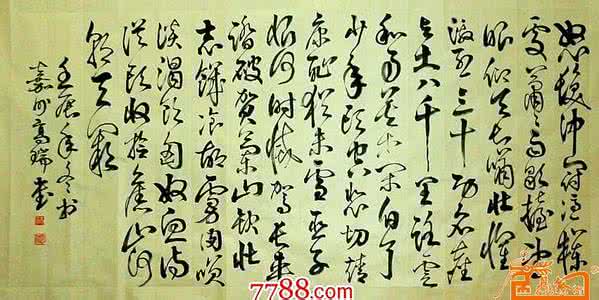 怒髮沖冠憑欄
處蕭蕭雨歇抬望
眼仰天長嘯壯懷
激烈三十功名塵
與土八千里路雲
和月莫等閑白了
少年頭空悲切靖
康恥猶未雪臣子
恨何時滅駕長車
踏破賀蘭山缺壯
志饑餐胡虜肉笑
談渴飲匈奴血待
從頭收拾舊山河
朝天闕
壬辰年冬書
嘉州高瑞
7788.com